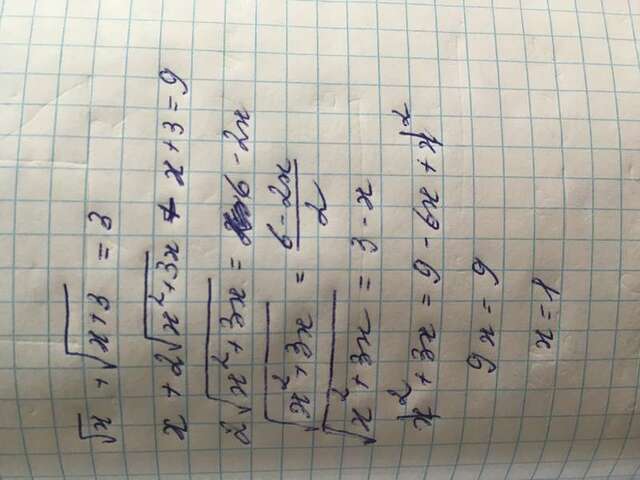 √x + √(x+3) = 3
x + 2√(x²+3x) + x+3 = 9
2√(x²+3x) = 6 - 2x
√(x²+3x) = (6-2x)/2
√(x²+3x) = 3 - x
x² + 3x = 9 - 6x + x²
9x = 9
x = 1